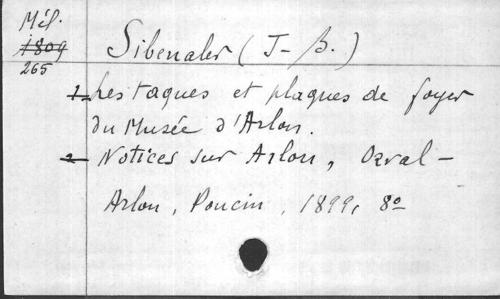 Mél.
1809
265
Sibenaler (J-B.)
1. Les taques et plaques de foyer
du Musée d'Arlon.
2 Notices sur Arlon, Orval -
Arlon, Poncin, 1899, 8º